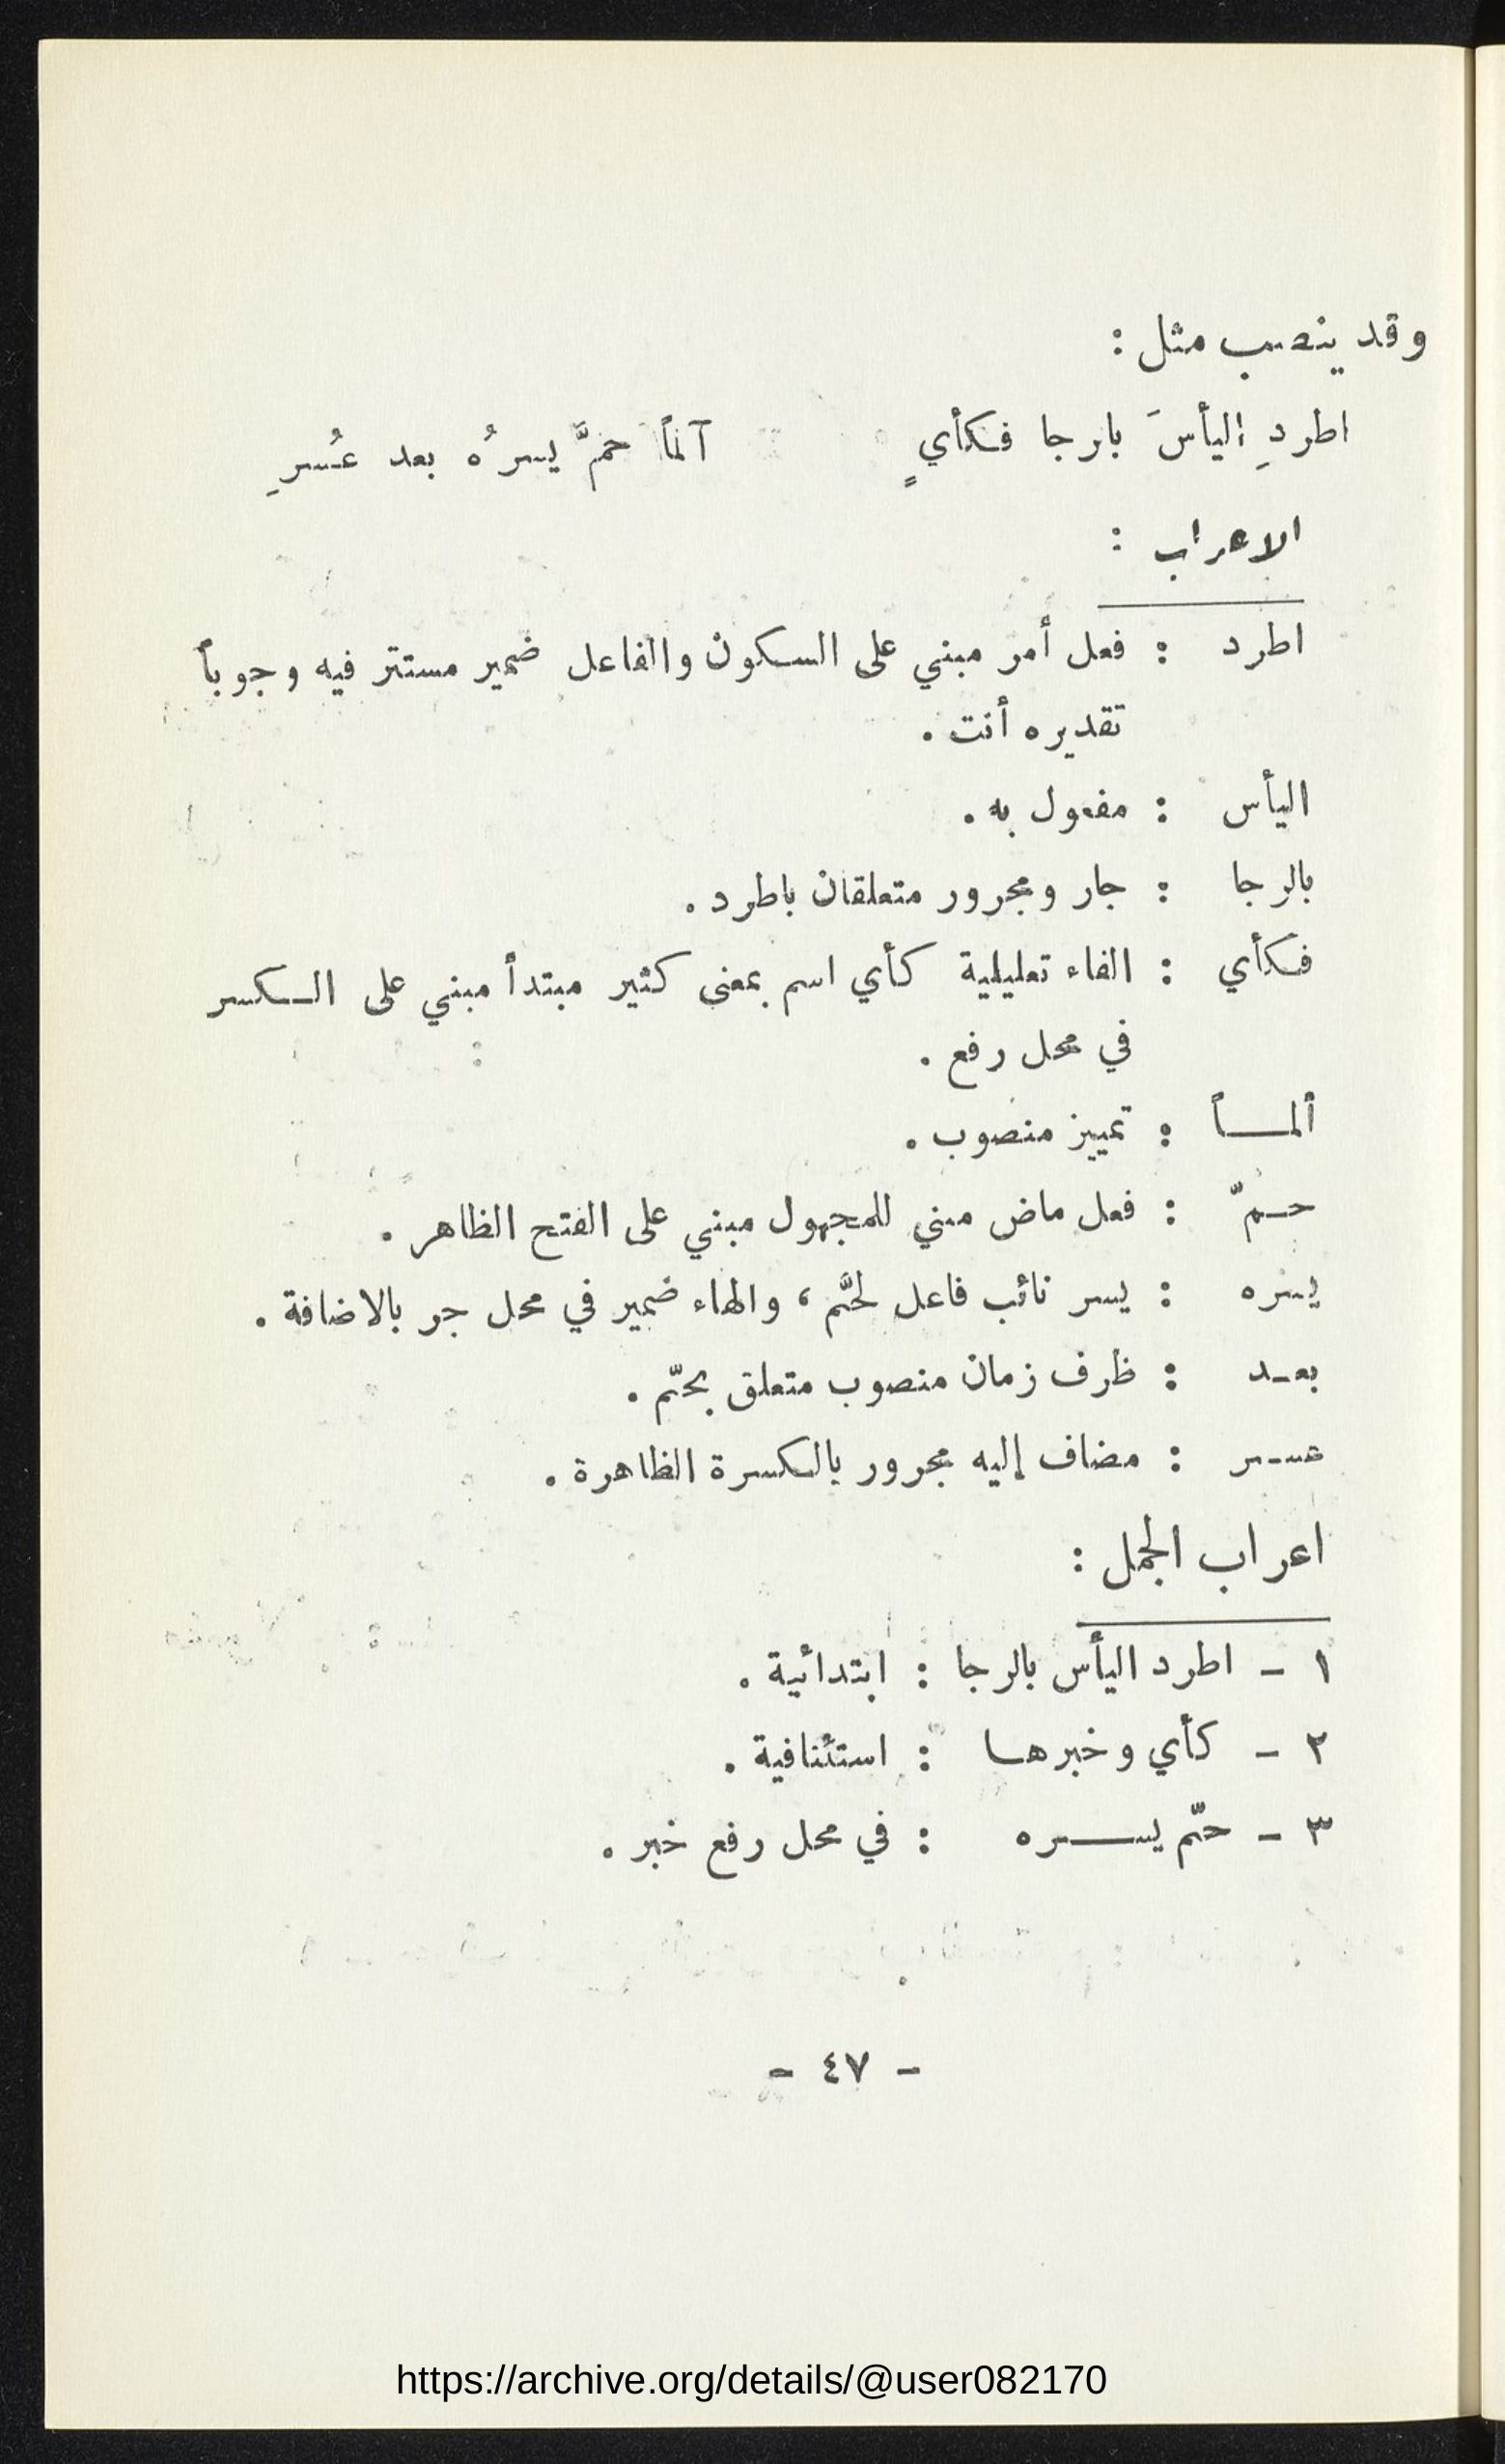 وقد ينصب مثل :
اطردِ اليأسَ بارجا فكأيٍ آلماً حمَّ يسرُه بعد عُسرِ
الاعراب :
اطرد : فعل أمر مبني على السكون والفاعل ضمير مستتر فيه وجوباً
تقديره أنت .
اليأس : مفعول به .
بالرجا : جار ومجرور متعلقان باطرد .
فكأي : الفاء تعليلية كأي اسم بمعنى كثير مبتدأ مبني على السكسر
في محل رفع .
ألماً : تمييز منصوب .
حمّ : فعل ماض مبني للمجهول مبني على الفتح الظاهر .
يسره : يسر نائب فاعل لحتَّم ، والهاء ضمير في محل جر بالاضافة .
بعد : ظرف زمان منصوب متعلق بحتّم .
عسر : مضاف إليه مجرور بالكسرة الظاهرة .
اعراب الجمل :
١ - اطرد اليأس بالرجا : ابتدائية .
٢ - كأي وخبرها : استئنافية .
٣ - حتّم يسره : في محل رفع خبر .
- ٤٧ -
https://archive.org/details/@user082170